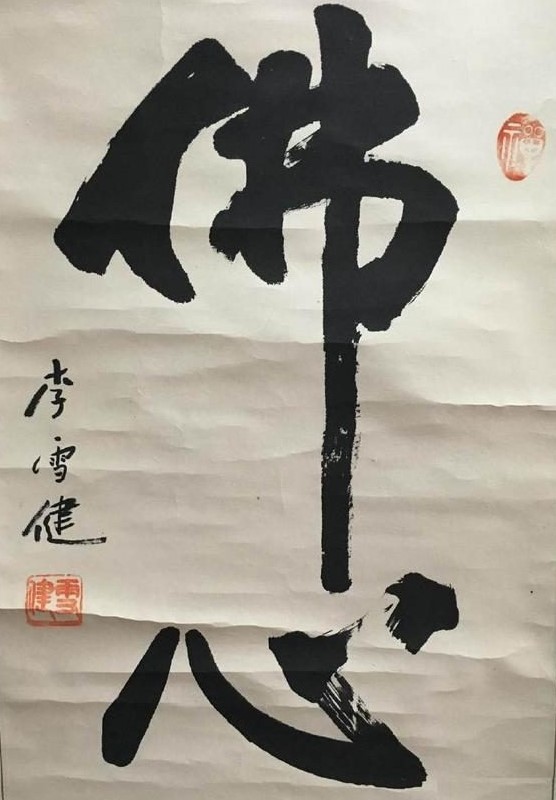 佛心
李雪健
雪健